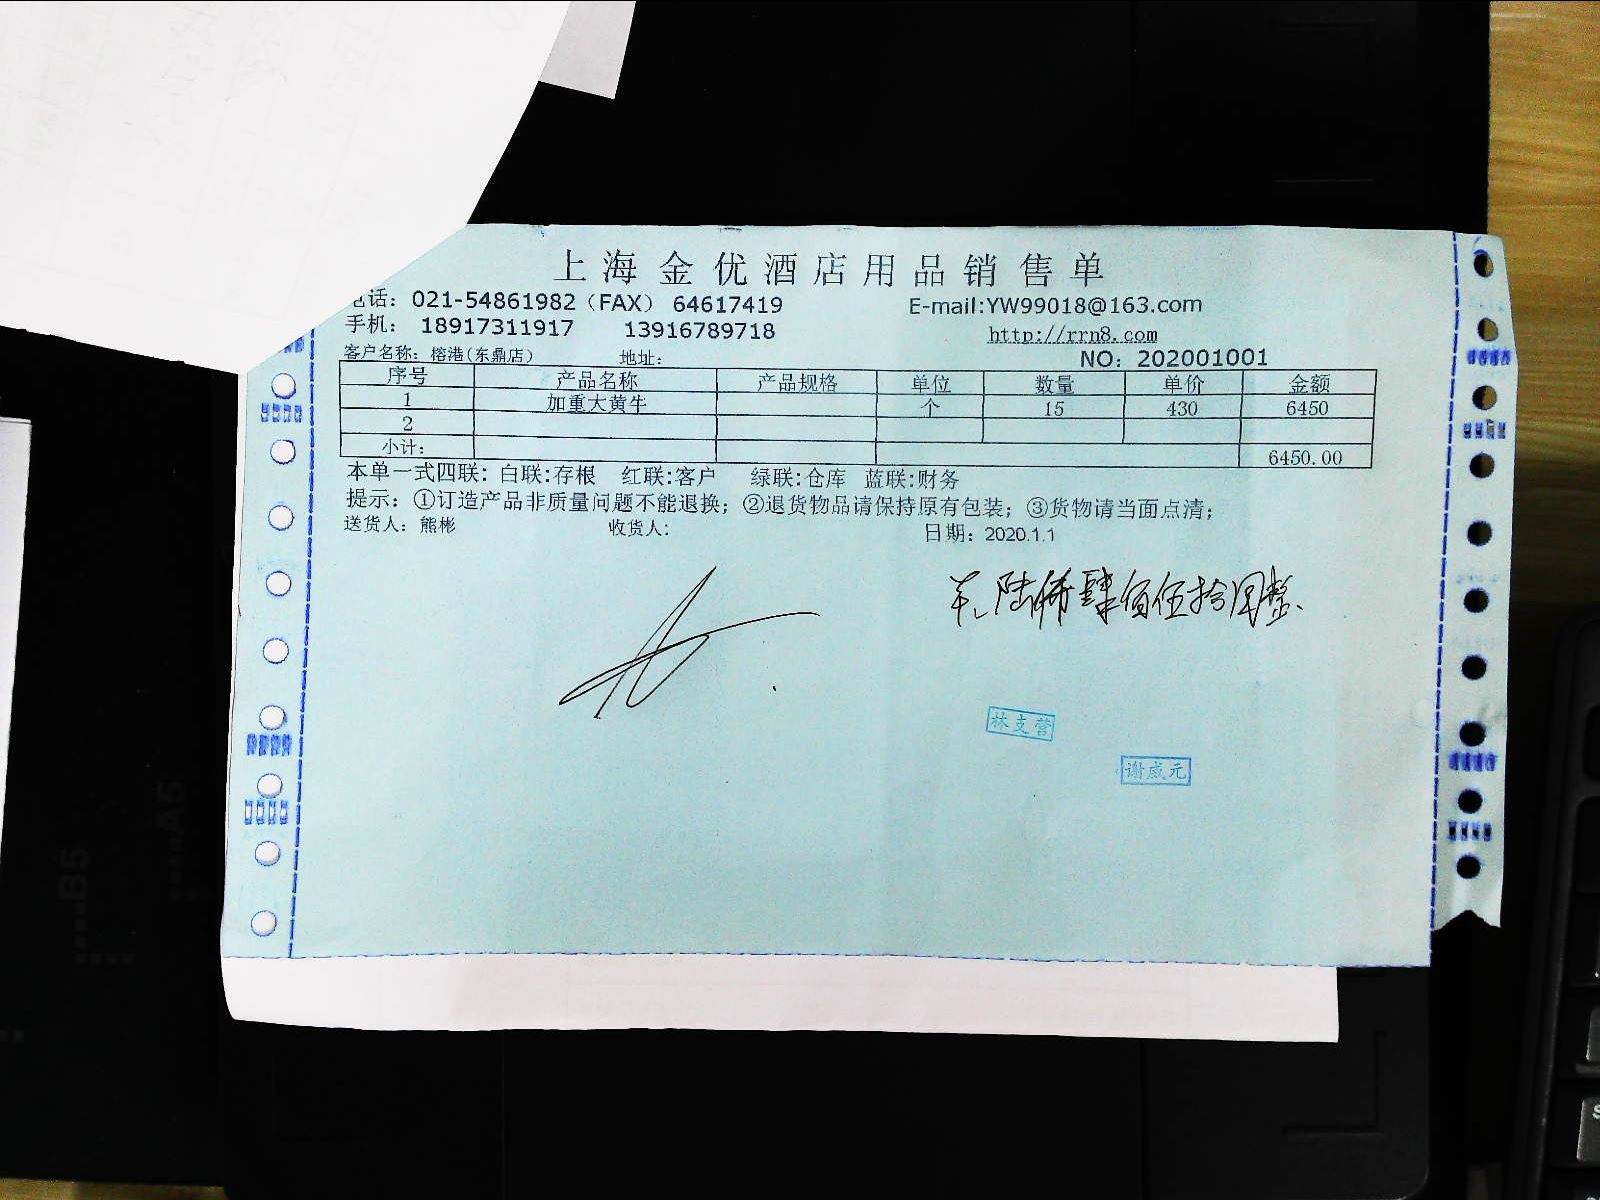 上海金优酒店用品销售单
电话：021-54861982（FAX） 64617419 E-mail:YW99018@163.com
手机： 18917311917 13916789718 http://rrn8.com
客户名称：榕港(东鼎店) 地址： NO：202001001
序号 产品名称 产品规格 单位 数量 单价 金额
1 加重大黄牛 个 15 430 6450
2
小计： 6450.00
本单一式四联：白联:存根 红联:客户 绿联:仓库 蓝联:财务
提示：①订造产品非质量问题不能退换；②退货物品请保持原有包装；③货物请当面点清；
送货人：熊彬 收货人： 日期：2020.1.1
陆仟肆佰伍拾圆整
林支营
谢成元
B5
A5